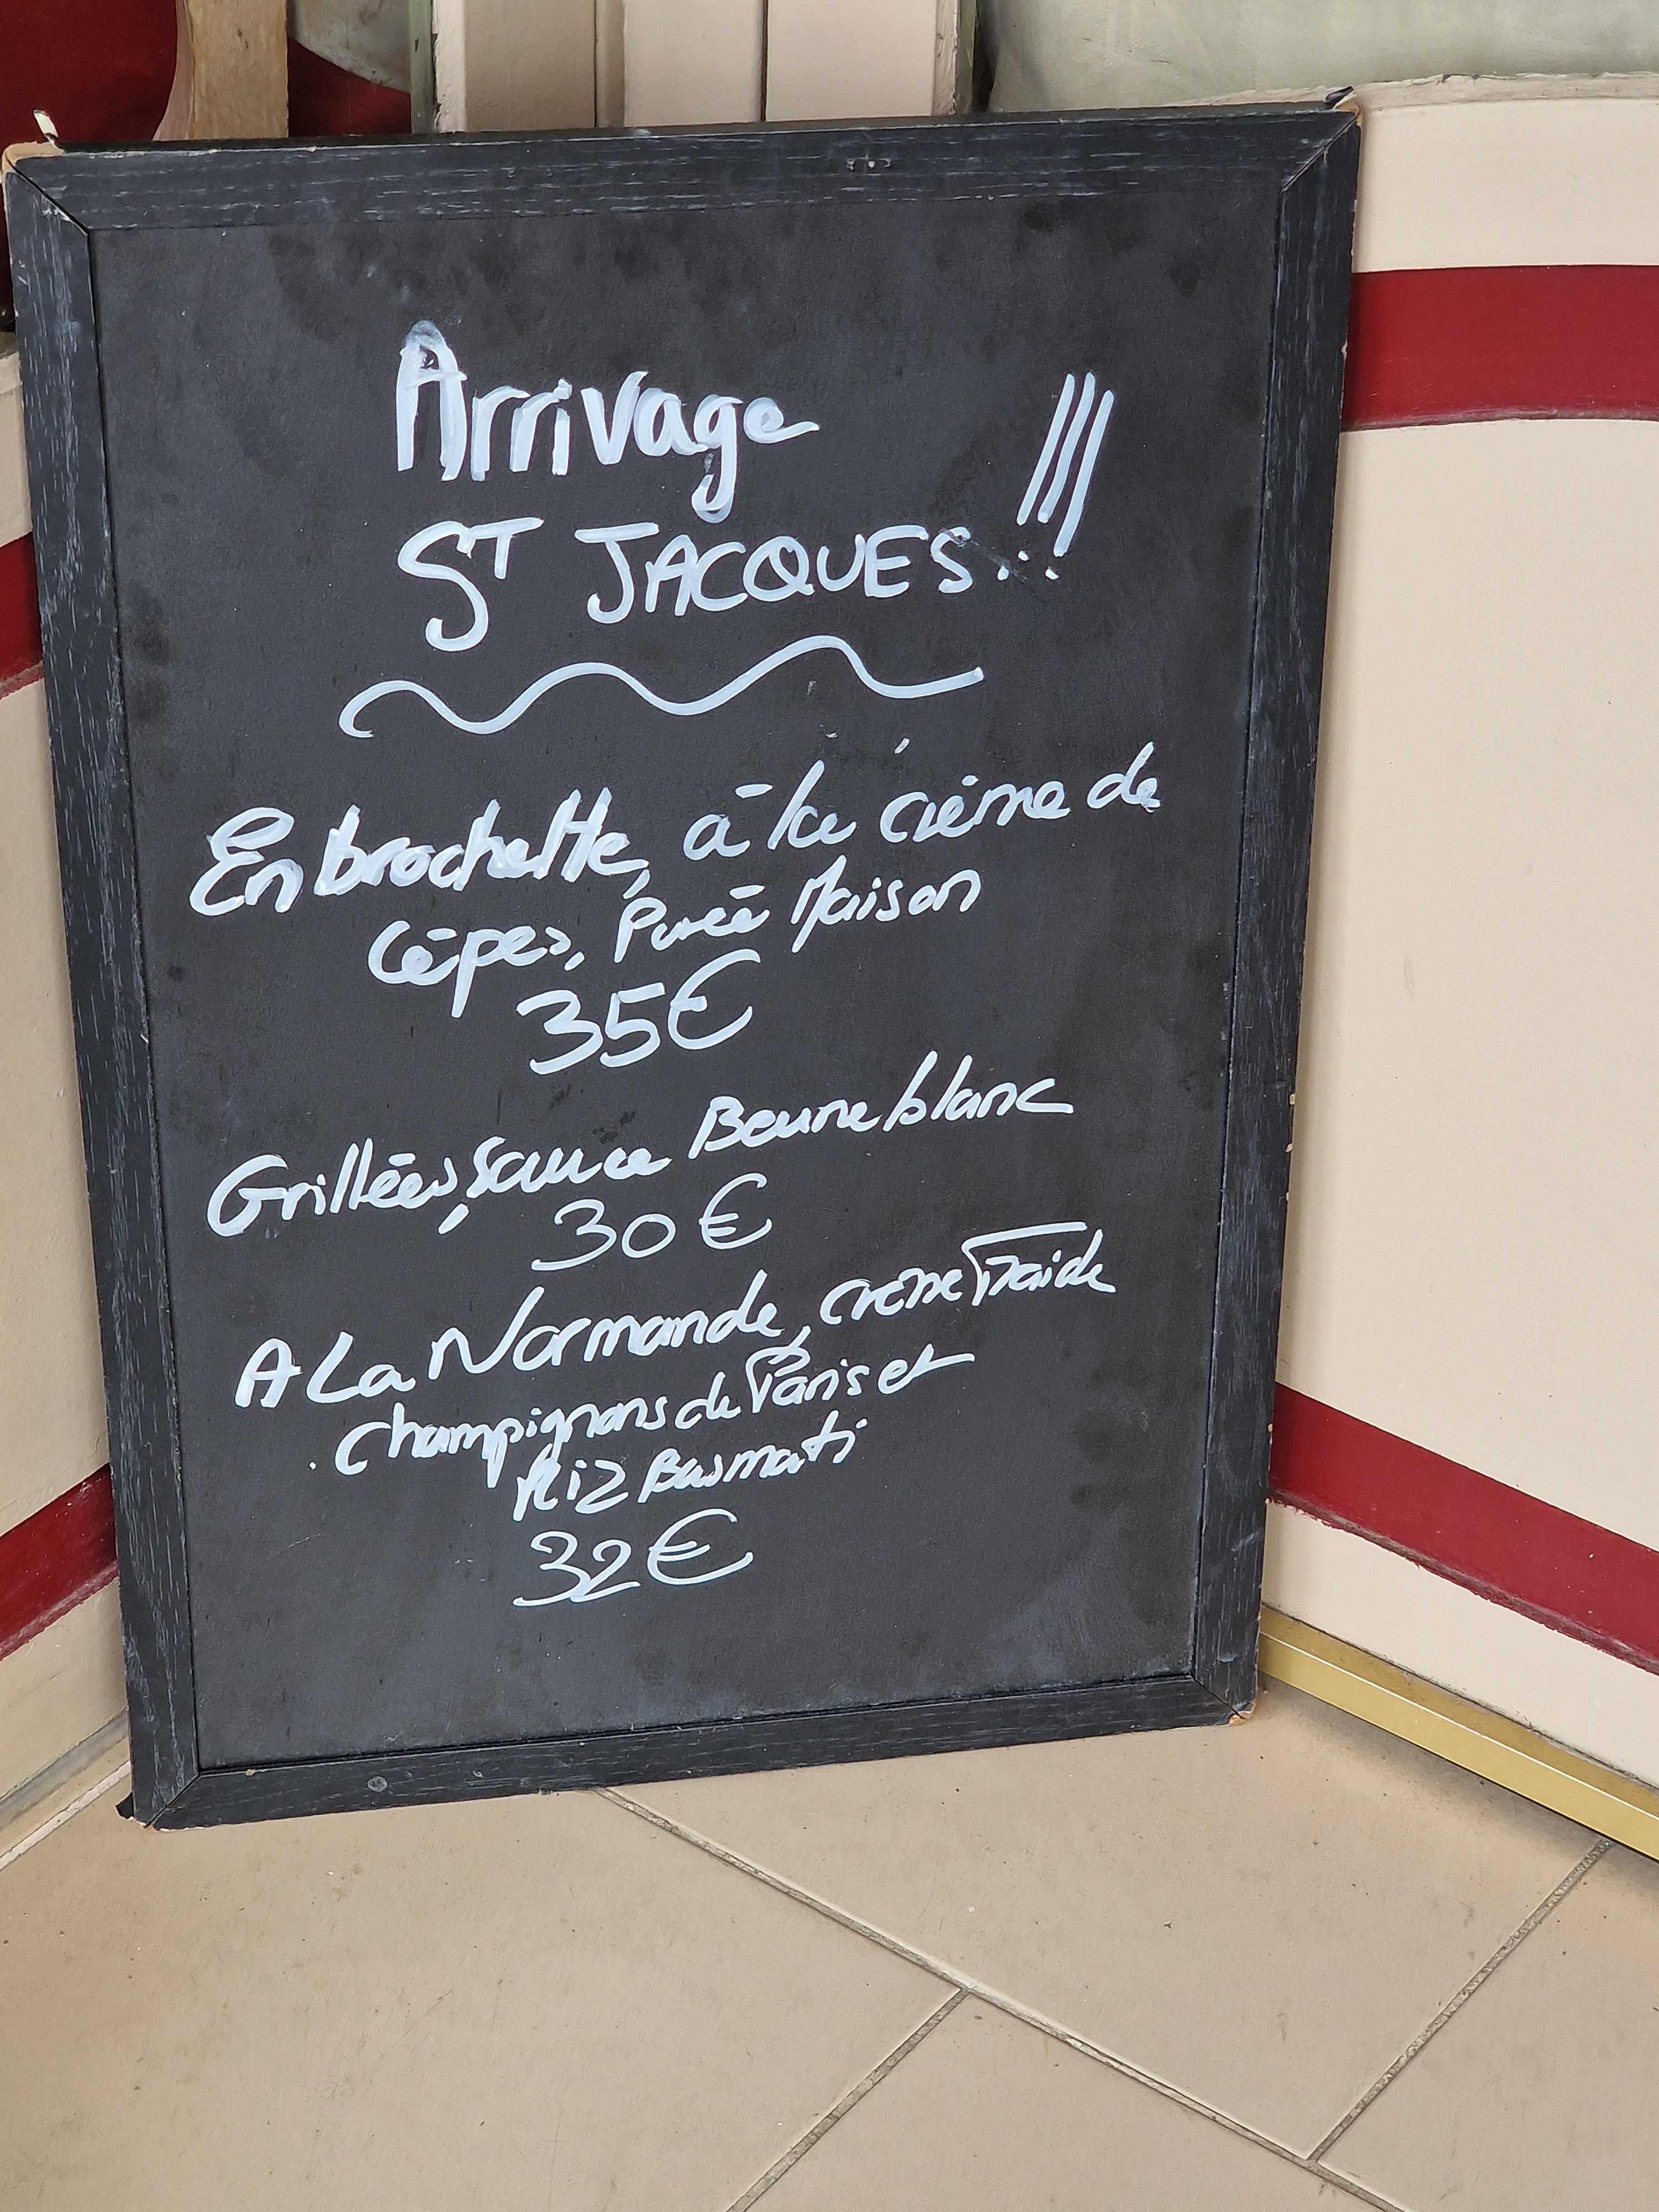 Arrivage
ST JACQUES !!!
En brochette, à la crème de
Cèpes, Purée Maison
35€
Grillées, Sauce Beurre blanc
30€
A La Normande, crème Fraiche
champignons de Paris et
Riz Basmati
32€